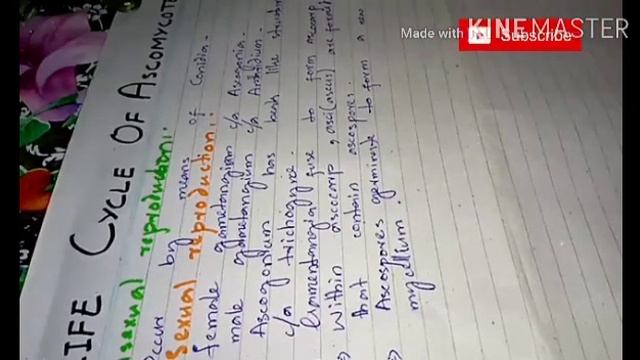 LIFE CYCLE OF ASCOMYCOTE
Asexual reproduction:
Occur by means of Conidia.
Sexual reproduction:
female gametangium c/a Ascogonia.
male gametangium c/a Antridium.
Ascogonium has beak like
c/a trichogyne.
fuse to form ascocarp,
Within ascocarp, asci(ascus) are formed
that contain ascospores.
Ascospores germinate to form a new
mycelium.
Made with
KINEMASTER
Subscribe